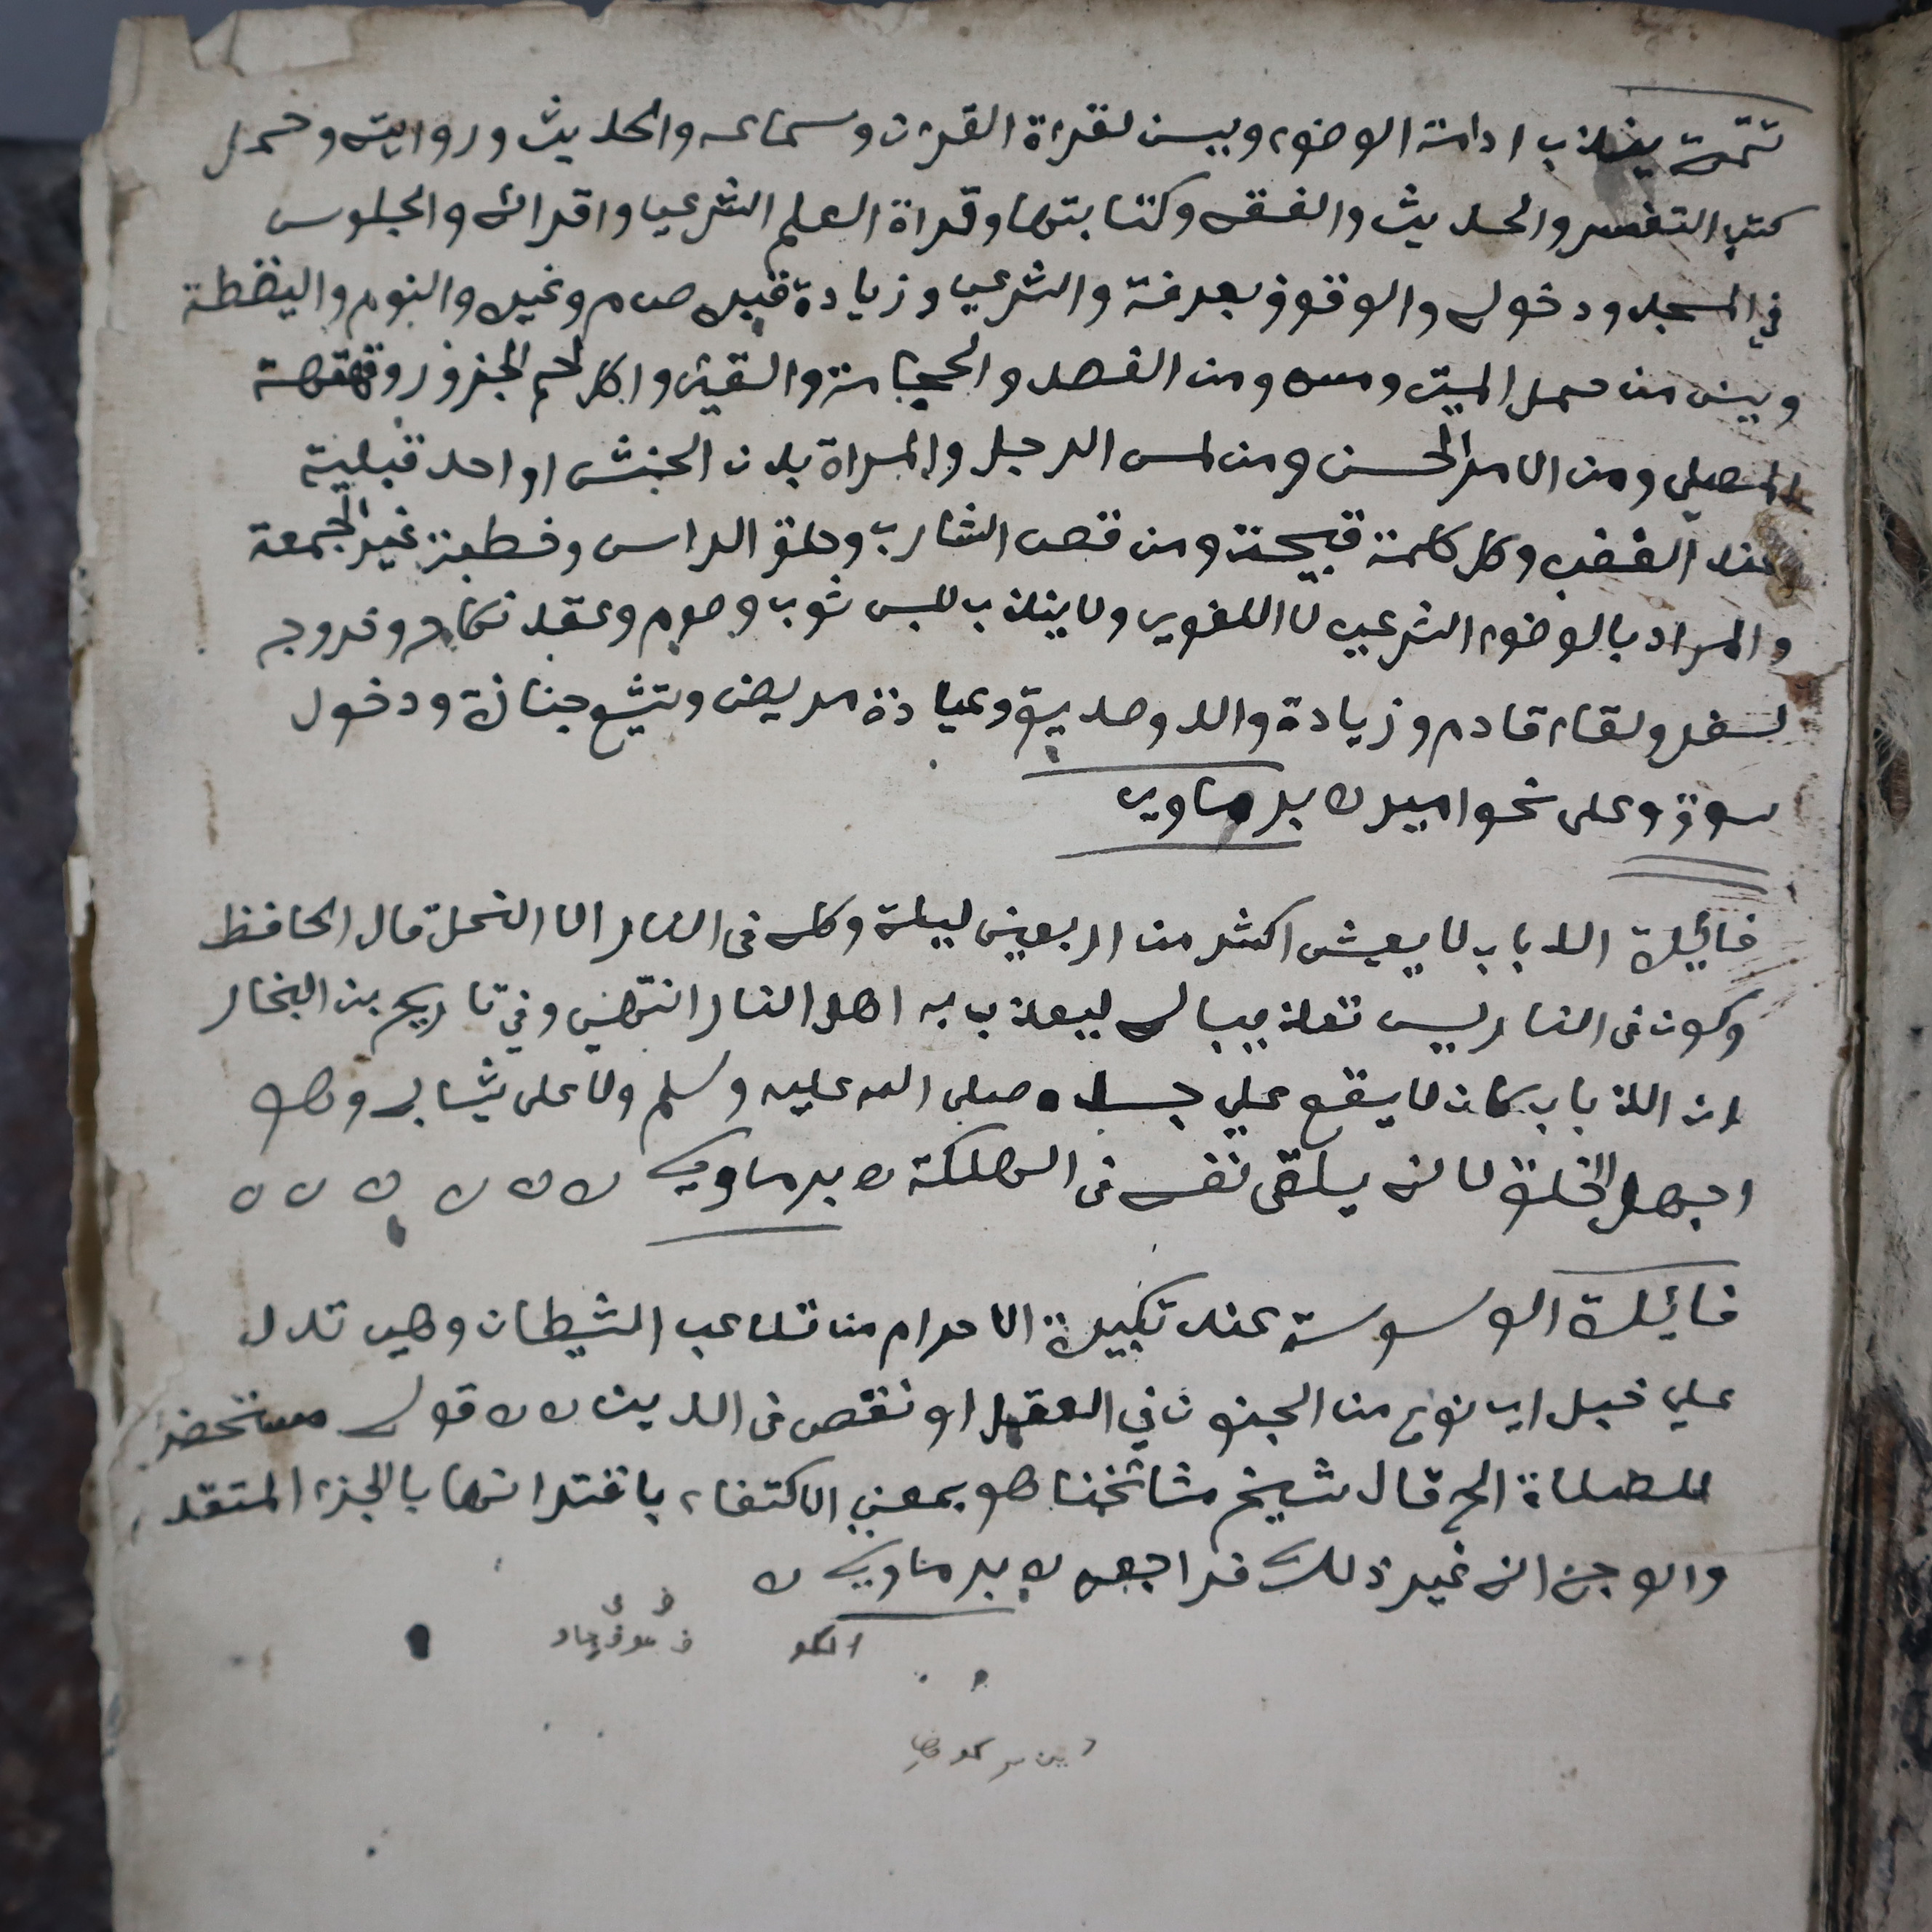 تتمة يندب ادامة الوضوء ويسن لقراة القرءن وسماعه والحديث وروايته وحمل
كتب التفسير والحديث والفقه وكتابتها وقراة العلم الشرعي واقرائه والجلوس
في المسجد ودخوله والوقوف بعرفة والشرعي وزيادة قبره ص م وغيره والنوم واليقظة
ويسن من حمل الميت ومسه ومن الفصد والحجامة والقيئ واكل لحم الجزور وقهقهة
المصلي ومن الامرد الحسن ومن لمس الرجل والمراة بدن الخنثى او احد قبليه
عند الغضب وكل كلمة قبيحة ومن قص الشارب وحلق الراس وخطبة غير الجمعة
والمراد بالوضوء الشرعي لا اللغوي ولا يندب للبس ثوب وصوم وعقد نكاح وخروج
لسفر ولقاء قادم وزيادة والد وصديق وعيادة مريض وتشيع جنازة ودخول
سوق وعلى نحو امير ه برماوي
فائدة الذباب لا يعيش اكثر من اربعين ليلة وكله فى النار الا النحل قال الحافظ
وكونه فى النار ليس تعذيبا له ليعذب به اهل النار انتهى وفي تاريخ بن النجار
ان الذباب كان لا يقع علي جسده صلى الله عليه وسلم ولا على ثيابه وهو
اجهل الخلق لانه يلقى نفسه فى الهلكة ه برماوي ه ه ه ه ه ه
فائدة الوسوسة عند تكبيرة الاحرام من تلاعب الشيطان وهي تدل
علي خبل اي نوع من الجنون في العقل او نقص فى الدين ه ه قوله مستحضر
للصلاة الخ قال شيخ مشائخنا هو بمعني الاكتفاء باقترانها بالجزء المتقد
والوجه انه غير ذلك فراجعه ه برماوي ه